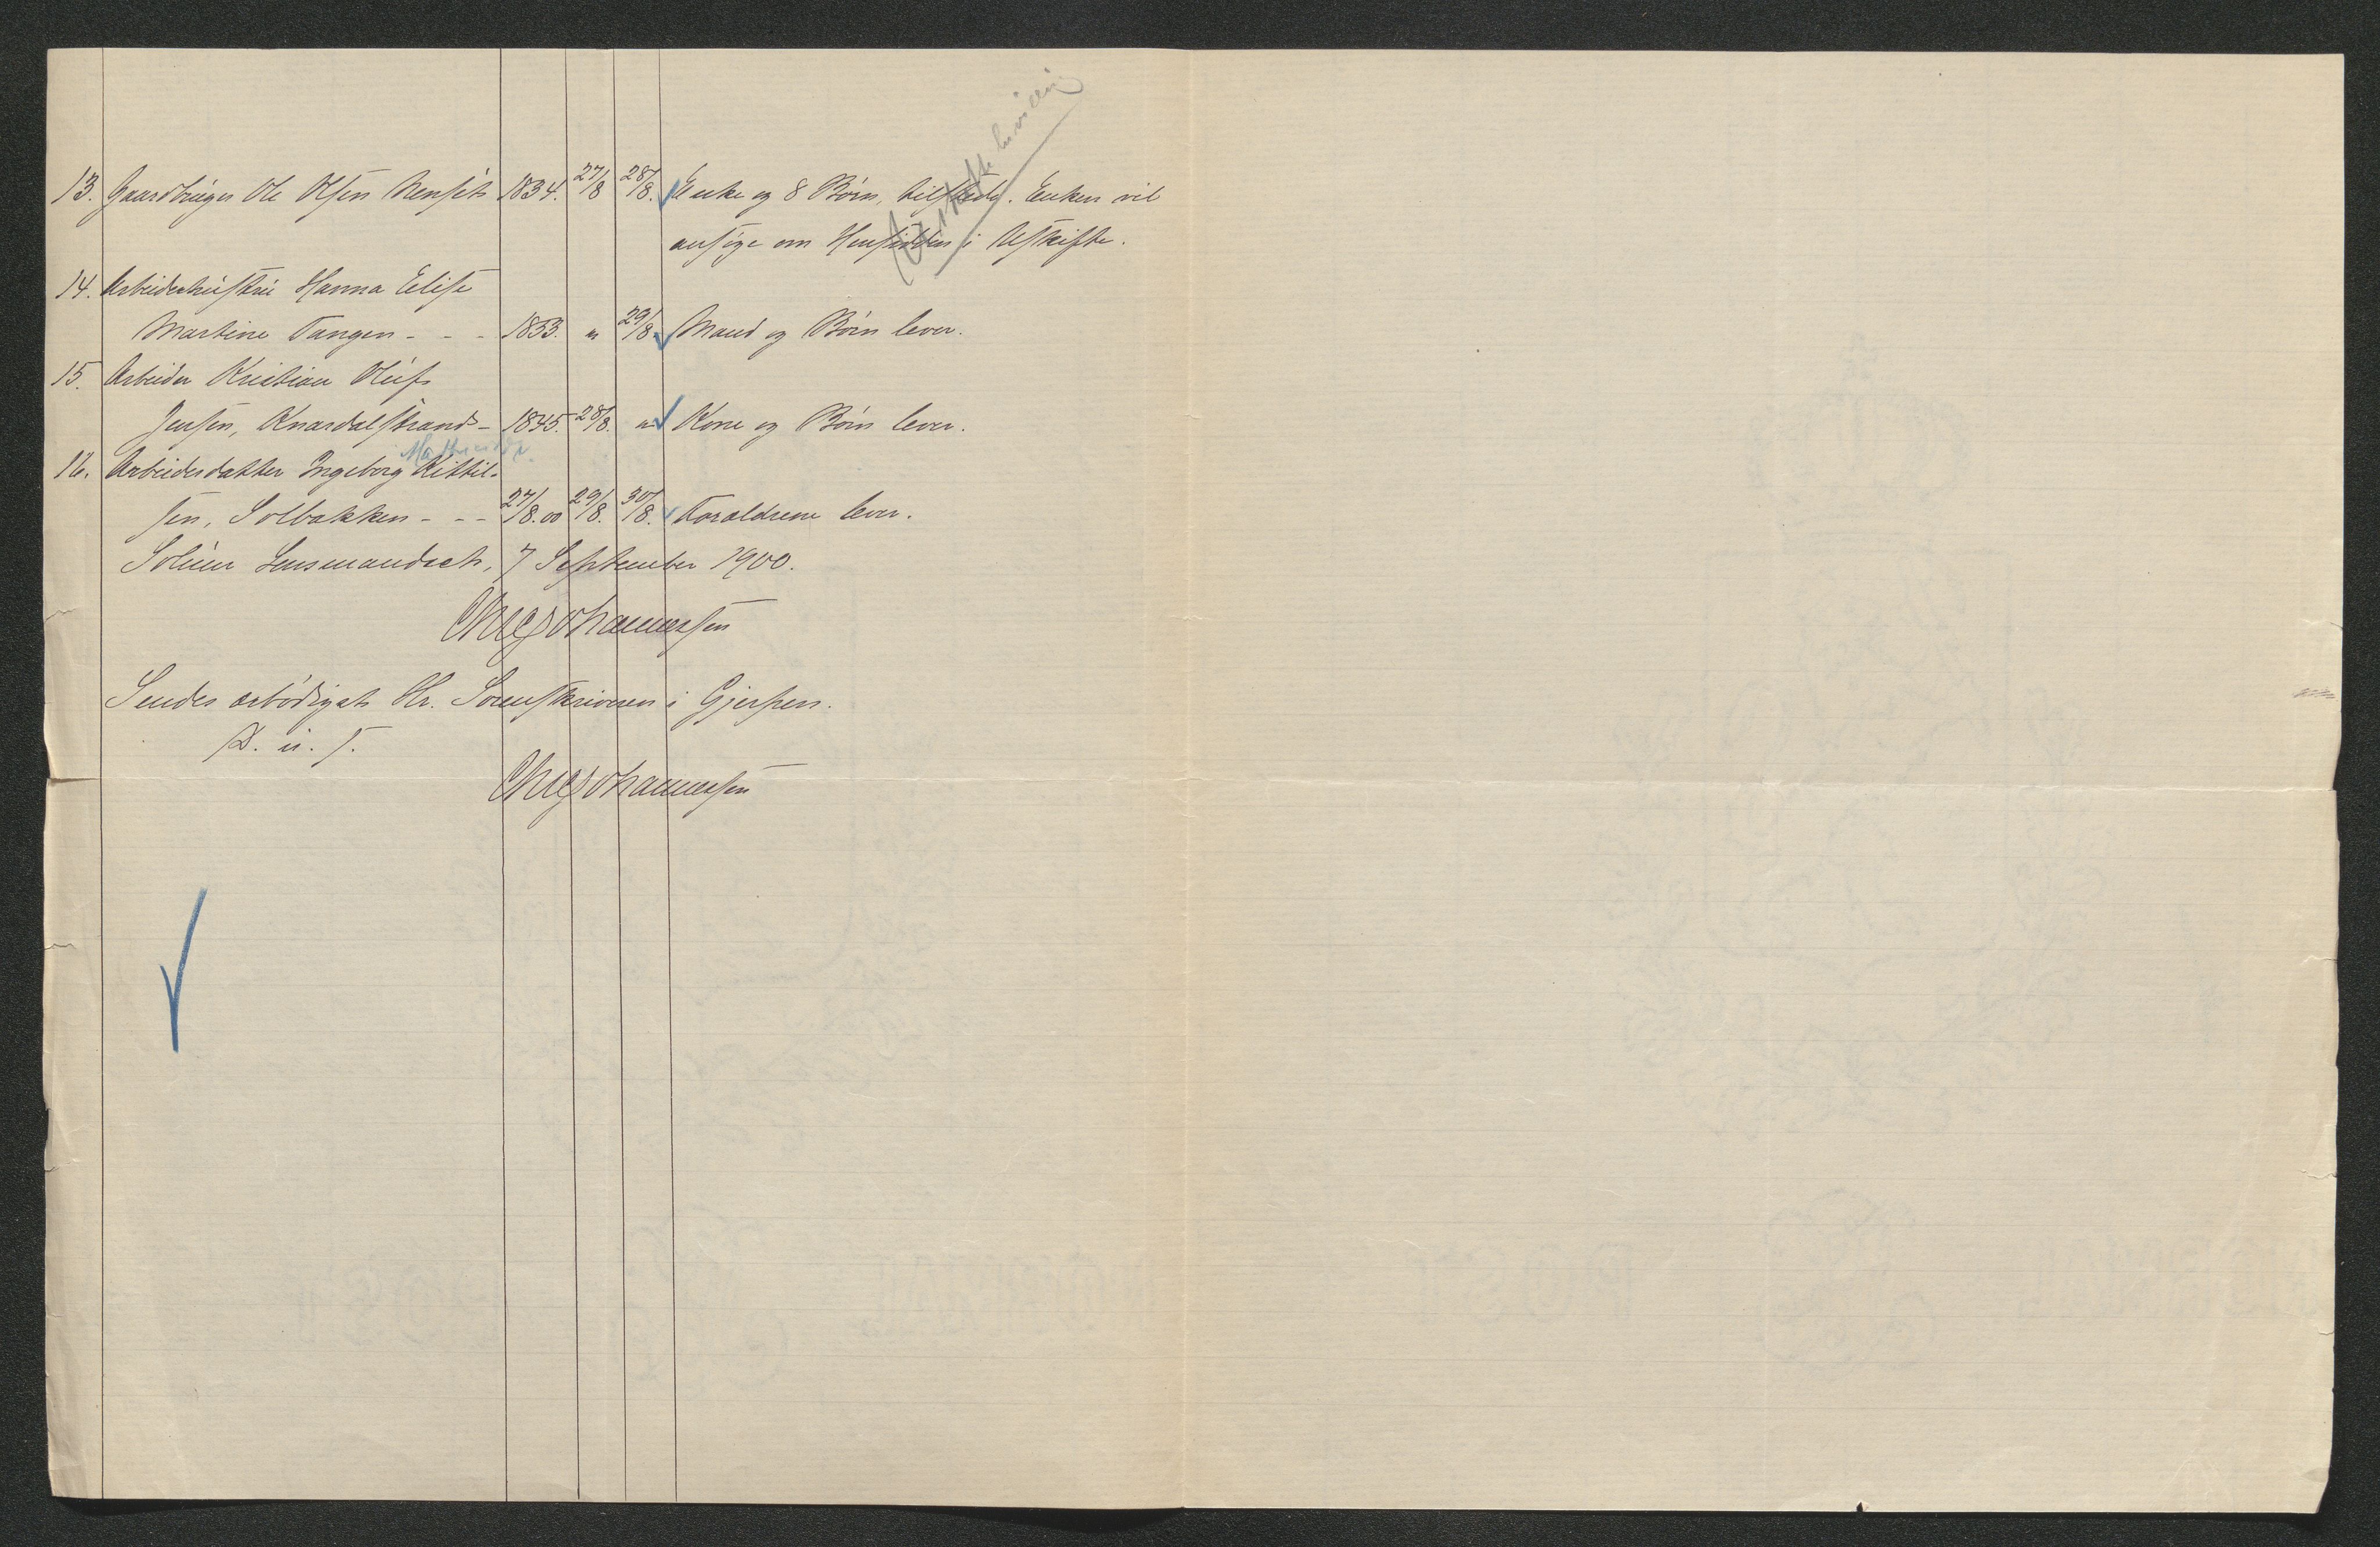 13. Gaardbruger Ole Olsen Nensét 1834. 27/8 28/8. Enke og 8 Børn, tilstede. Enken vil
ansøge om Hensidden i Uskifte.
14. Arbeiderhustru Hanna Elise
Martine Tangen - - - 1833. " 29/8. Mand og Børn lever.
15. Arbeider Kristian Oluf
Jensen, Knardalstrand - 1845. 28/8. " Kone og Børn lever.
16. Arbeiderdatter Ingeborg Kittil-
sen, Solbakken - - - 27/8.00 29/8. 30/8. Forældrene lever.
Solum Lensmandset, 7 September 1900.
Chr Johannessen
Sendes ærbødigst Hr. Sorenskriveren i Gjerpen.
D. u. S.
Chr Johannessen